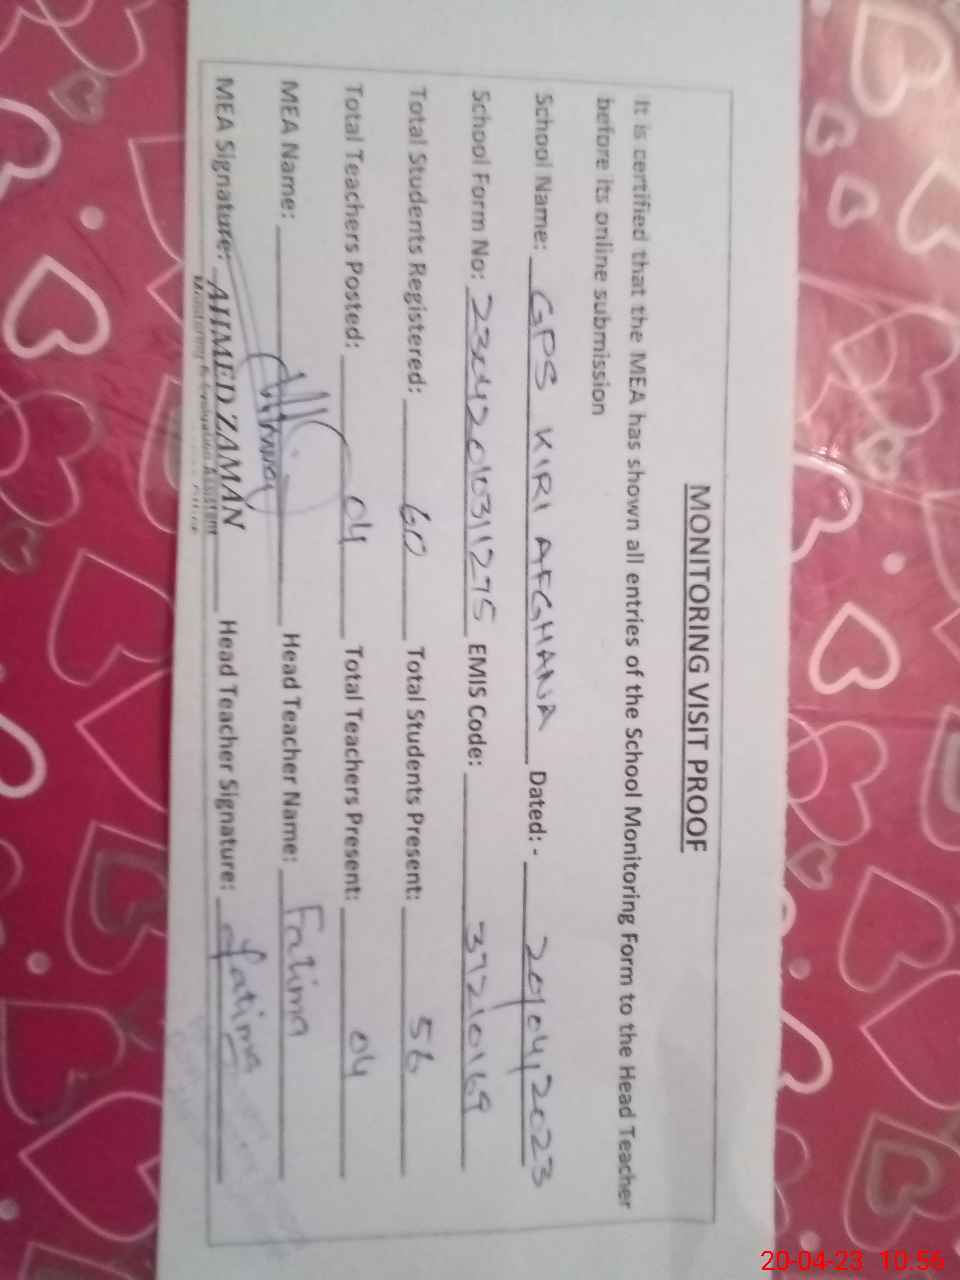 MONITORING VISIT PROOF
It is certified that the MEA has shown all entries of the School Monitoring Form to the Head Teacher
before its online submission
School Name: GPS KIRI AFGHANA Dated: - 20/04/2023
School Form No: EMIS Code: 37210169
Total Students Registered: 60 Total Students Present: 56
Total Teachers Posted: 04 Total Teachers Present: 04
MEA Name: Head Teacher Name: Fatima
MEA Signature: AHMED ZAMAN Head Teacher Signature: fatima
Monitoring & Evaluation Assistant
20-04-23 10:56